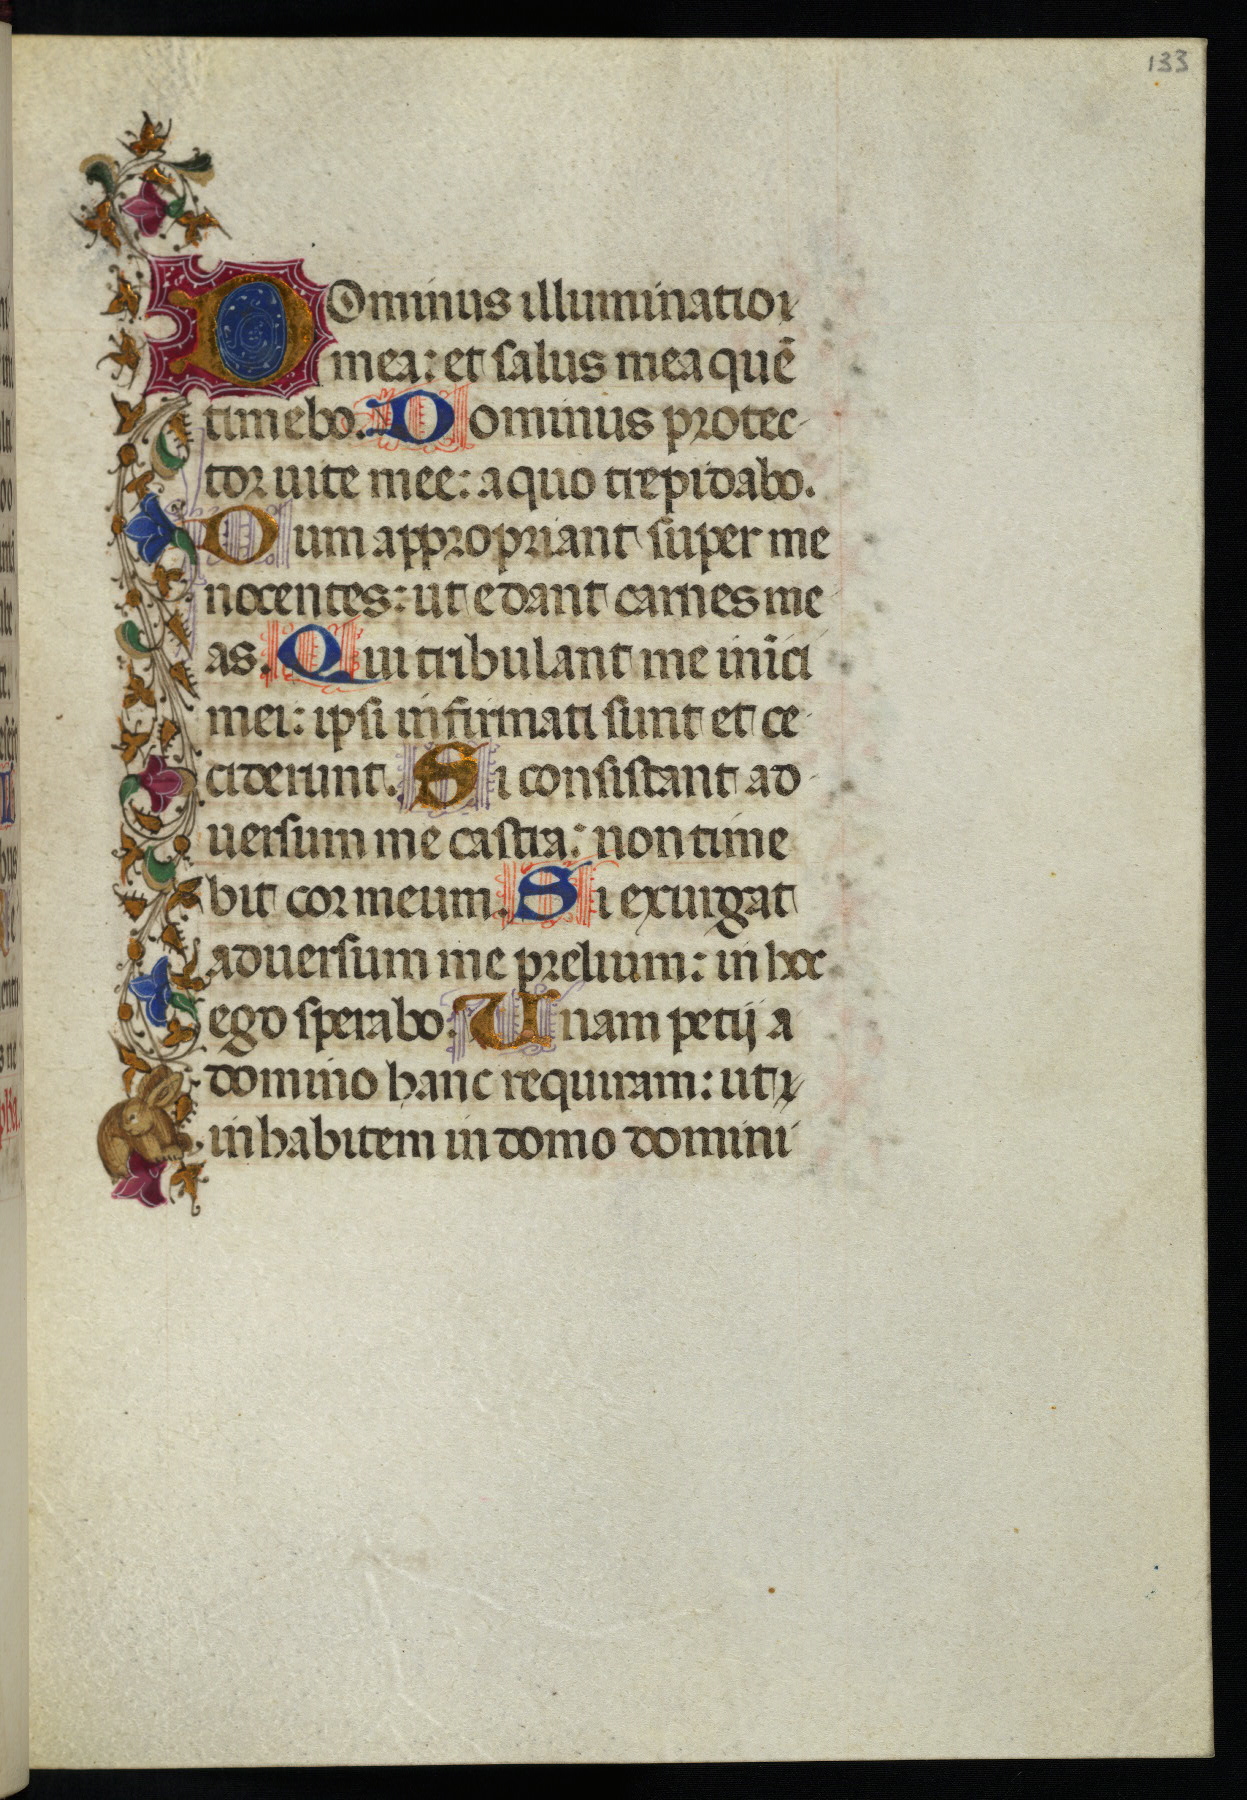 133
Dominus illuminatio
mea: et salus mea quē
timebo. Dominus protec
tor uite mee: a quo trepidabo.
Dum appropriant super me
nocentes: ut edant carnes me
as. Qui tribulant me inīci
mei: ipsi infirmati sunt et ce
ciderunt. Si consistant ad
uersum me castra: non time
bit cor meum. Si exurgat
aduersum me prelium: in hoc
ego sperabo. Unam petij a
domino hanc requiram: ut
inhabitem in domo domini